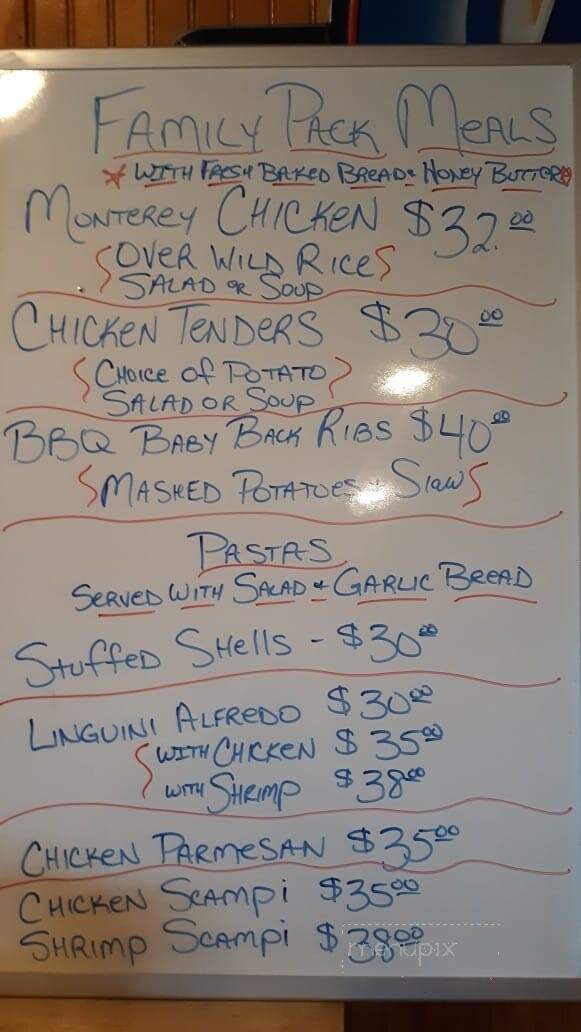 FAMILY PACK MEALS
* WITH FRESH BAKED BREAD & HONEY BUTTER
MONTEREY CHICKEN $32.00
OVER WILD RICE
SALAD OR SOUP
CHICKEN TENDERS $30 00
CHOICE OF POTATO
SALAD OR SOUP
BBQ BABY BACK RIBS $40 00
MASHED POTATOES & Slaw
PASTAS
SERVED WITH SALAD & GARLIC BREAD
STUFFED SHELLS - $30 00
LINGUINI ALFREDO $30 00
WITH CHICKEN $35 00
WITH SHRIMP $38 00
CHICKEN PARMESAN $35 00
CHICKEN SCAMPI $35 00
SHRIMP SCAMPI $38 00
menupix